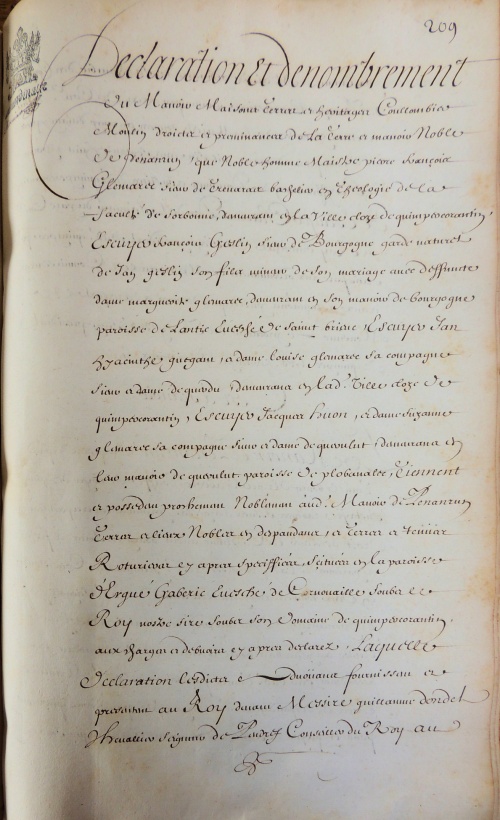 209
Declaration Et denombrement
Du Manoir Maisons terres et heritages Coullombier
Moulin droicts et preminances de La terre et manoir Noble
De Penanrun que Noble homme Maistre pierre François
Glemarec sieur de trevarat bachelier en theologie de la
faculté de Sorbonne, demeurant en La Ville close de quimpercorantin
Escuyer François Geslin sieur de Bourgogne garde naturel
de Jan geslin son fils mineur de son mariage avec deffuncte
dame margueritte glemarec, demeurant en son manoir de bourgogne
paroisse de Lantic Evesché de saint brieuc Escuyer Jan
hyacinthe guegant, et dame louise glemarec sa compagne
sieur et dame de querdu, demeurans en lad. Ville close de
quimpercorantin, Escuyer Jacques huon, et dame suzanne
glemarec sa compagne sieur et dame de
leur manoir de paroisse de plobanalec, Tiennent
et possedent prochement Noblement audt. Manoir de Penanrun
terres et lieux Nobles en dependans, et terres et tenues
Roturieres cy apres speciffiées, scituées en la paroisse
d'Ergué Gaberic Evesché de Cornouaille soubz le
Roy nostre sire soubz son Domaine de quimpercorantin,
aux charges et debvoirs cy apres declarez, Laquelle
Declaration lesdicts fournissent et
presentent au Roy devant Messire guillaume
Chevallier seigneur de Conseiller du Roy au